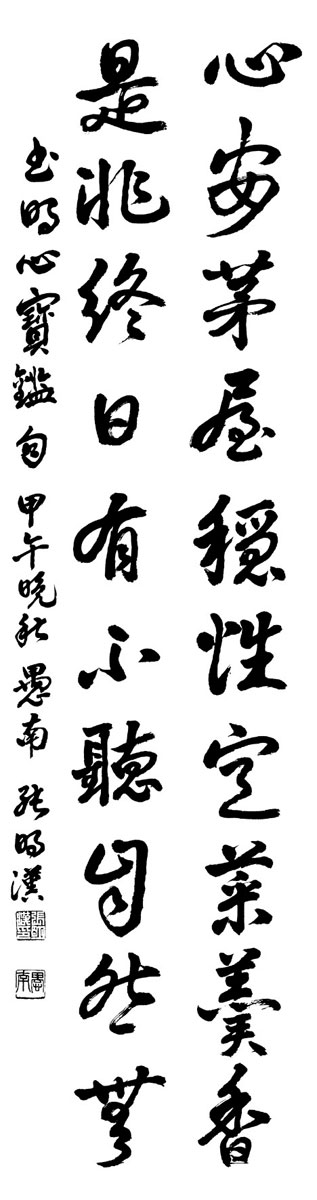 心安茅屋穩性定菜羹香
是非終日有不聽自然無
書明心寶鑑句 甲午晚秋 愚南 張明漢